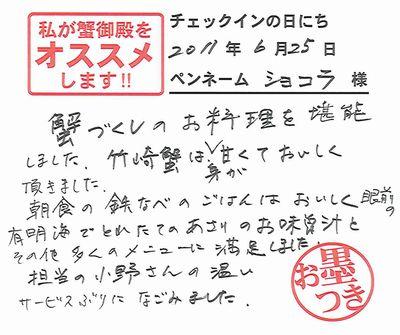 私が蟹御殿を
オススメ
します!!
チェックインの日にち
2011年6月25日
ペンネーム ショコラ 様
蟹づくしのお料理を堪能
しました。竹崎蟹は身が甘くておいしく
頂きました。
朝食の鉄なべのごはんはおいしく眼前の
有明海でとれたてのあさりのお味噌汁と
その他多くのメニューに満足しました。
担当の小野さんの温い
サービスぶりになごみました。
お墨つき